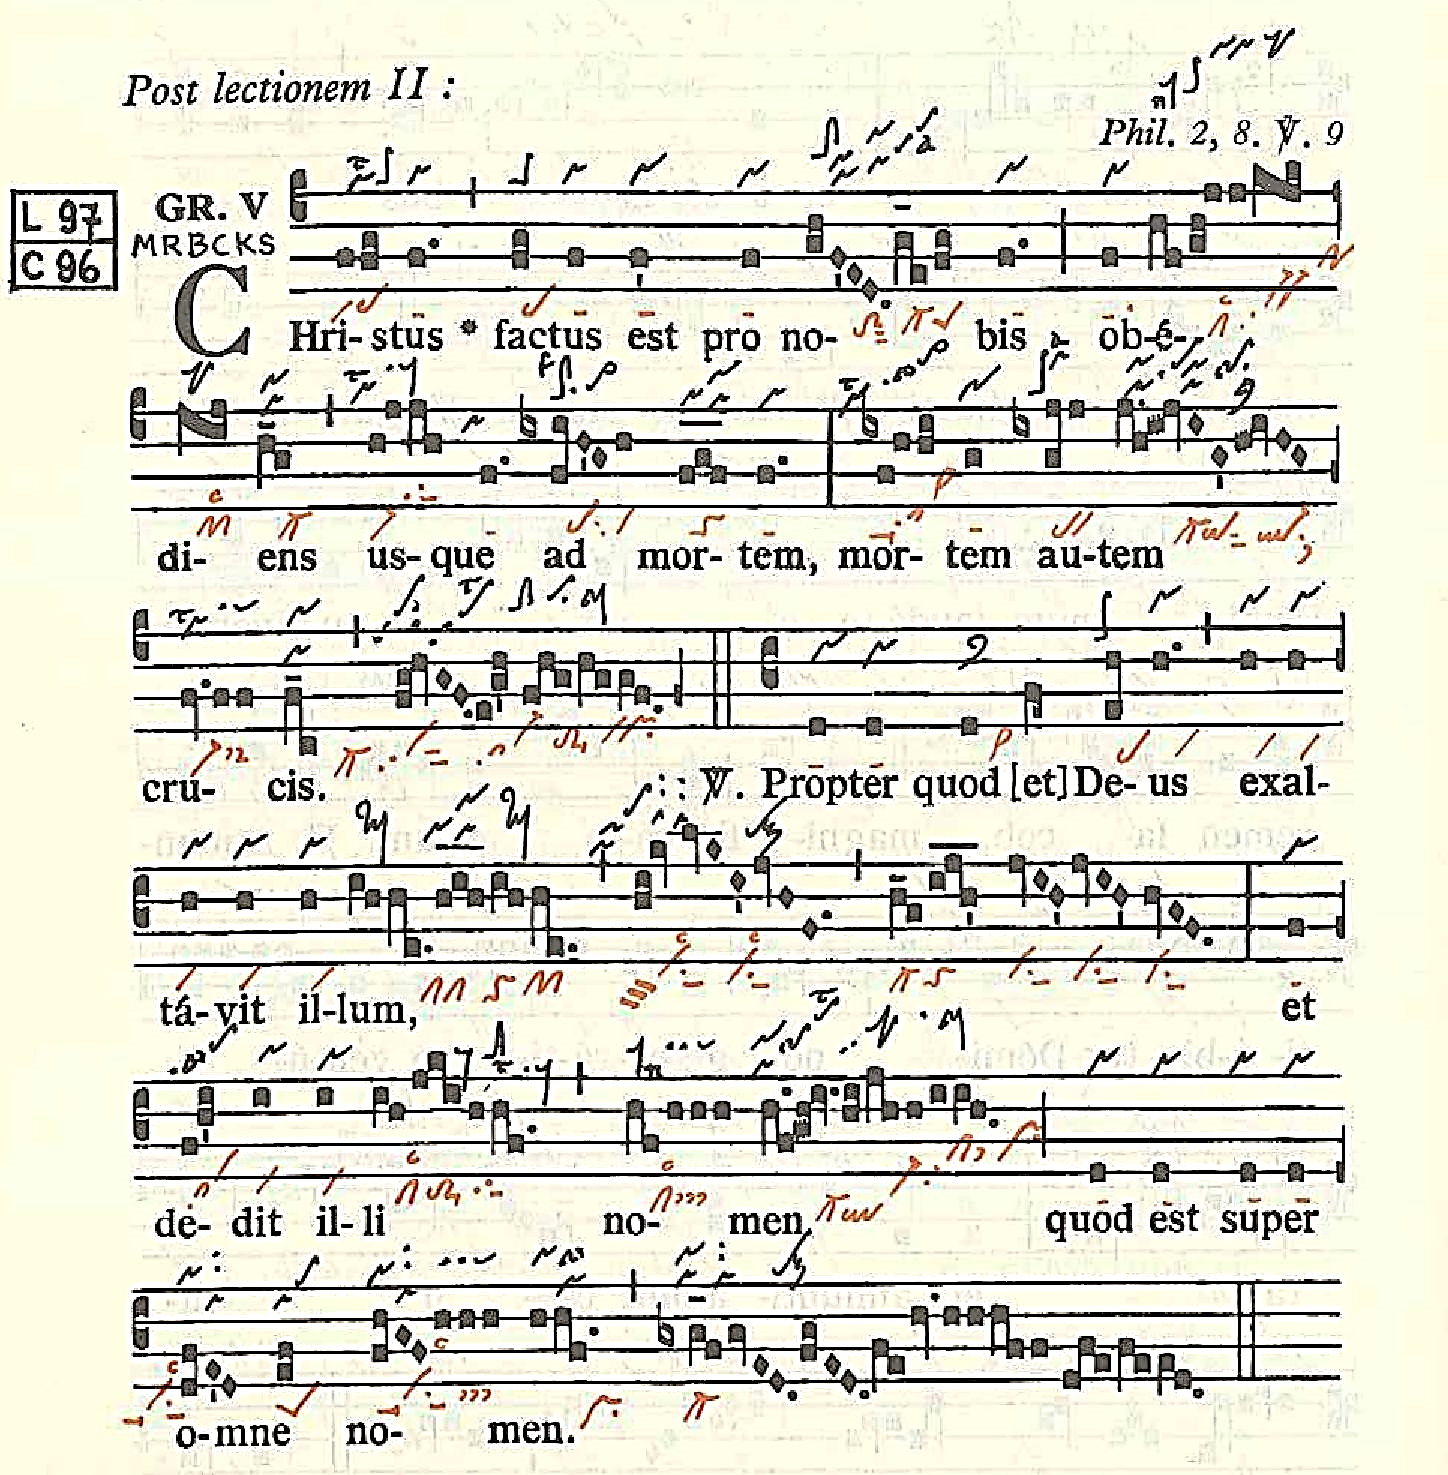 Post lectionem II :
Phil. 2, 8. ℣. 9
L 97
GR. V
MRBCKS
C 96
CHri-stus * factus est pro no- bis ob-é-
di- ens us-que ad mor-tem, mor- tem au-tem
cru- cis. ℣. Propter quod [et] De- us exal-
tá-vit il-lum, et
de- dit il-li no- men, quod est super
o-mne no- men.